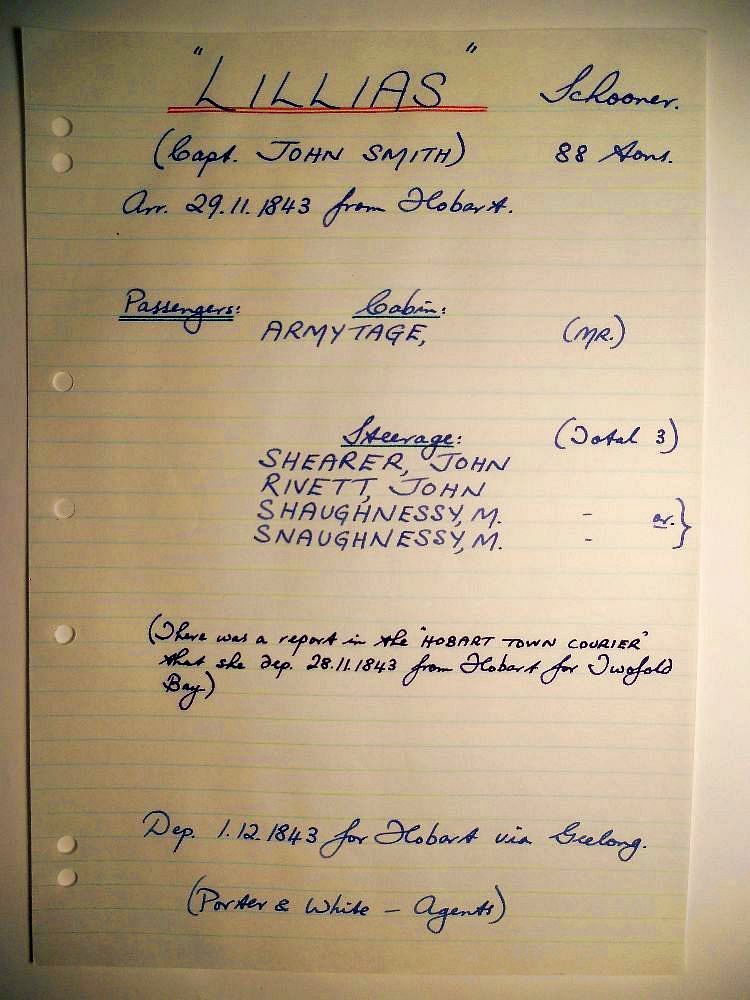 "LILLIAS" Schooner.
(Capt. JOHN SMITH) 88 Tons.
Arr. 29.11.1843 from Hobart.
Passengers: Cabin:
ARMYTAGE, (MR.)
Steerage: (Total 3)
SHEARER, JOHN
RIVETT, JOHN
SHAUGHNESSY, M. - or. }
SNAUGHNESSY, M. -
(There was a report in the "HOBART TOWN COURIER"
that she dep. 28.11.1843 from Hobart for Twofold
Bay.)
Dep. 1.12.1843 for Hobart via Geelong.
(Porter & White - Agents)